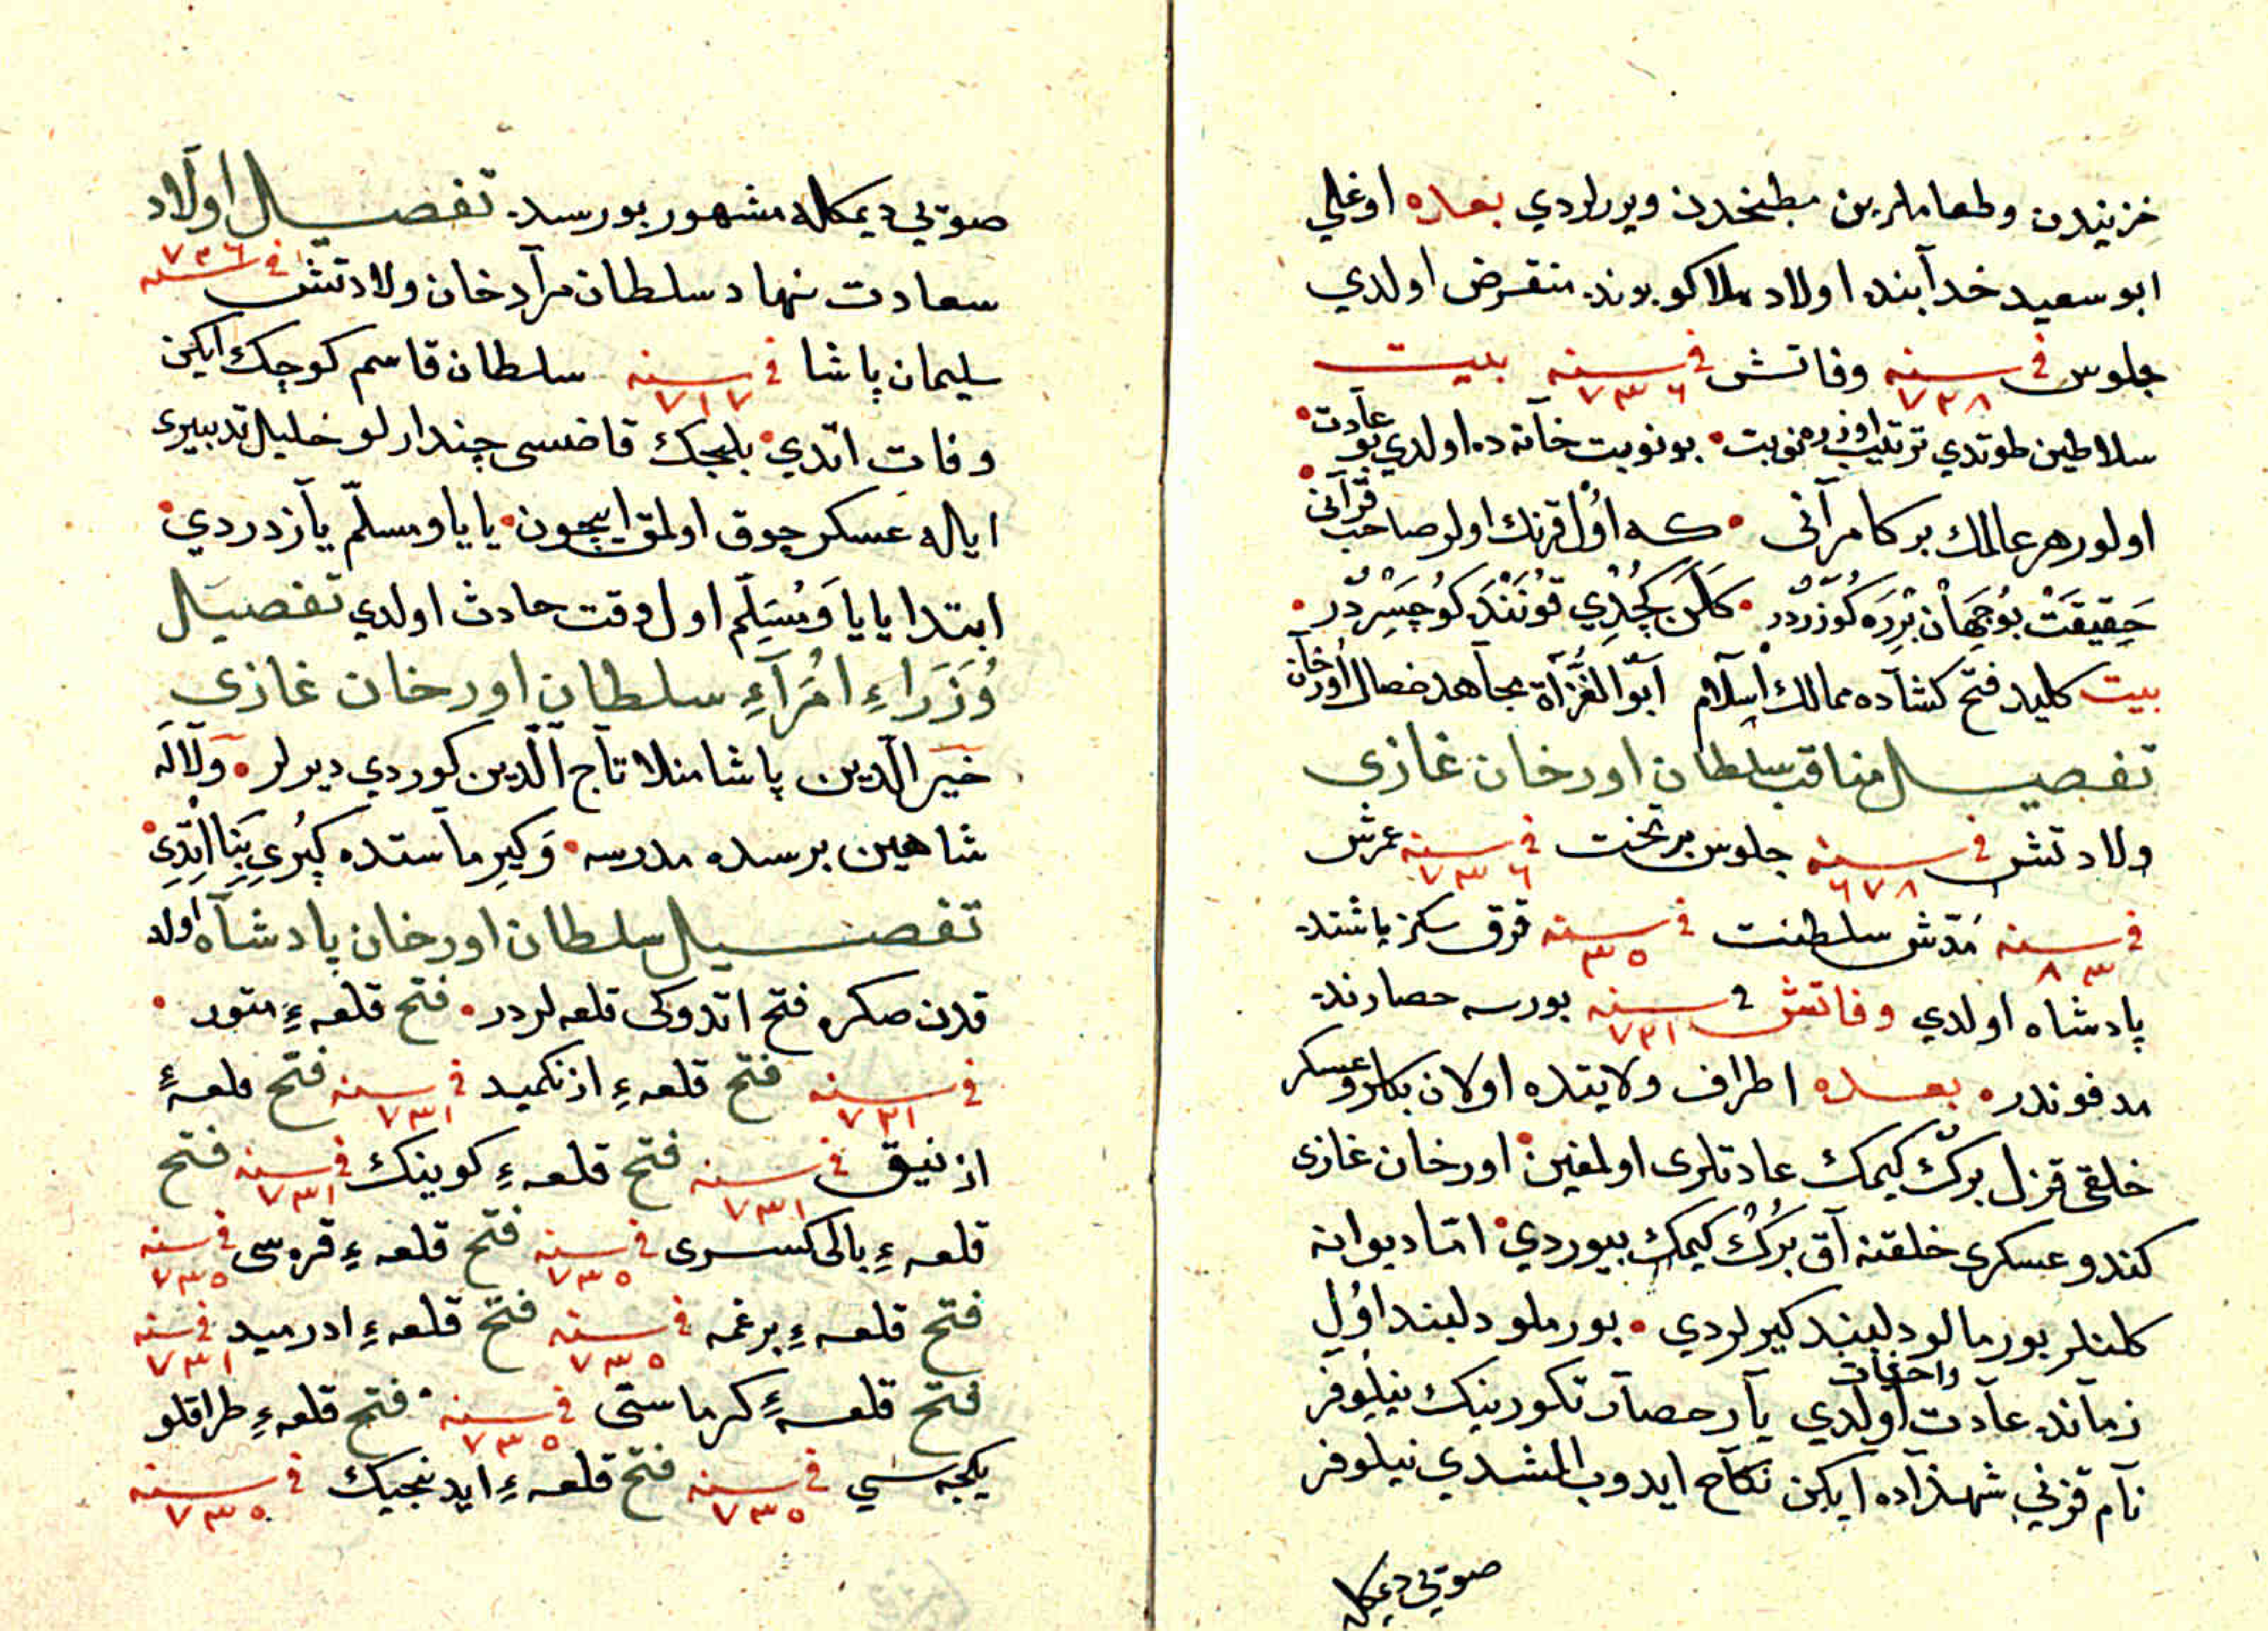 خزینه‌دن وطعاملرین مطبخدن ویررلردي بعده اوغلي
ابو سعید خدابنده اولاد هلاکو بونده منقرض اولدي
جلوس في سنه ٧٢٨ وفاتش في سنه ٧٣٦ بیت
سلاطین طوتدي ترتیب اوزره نوبت بو نوبت خانه ده اولدي بو عادت
اولور هر عالمك بر کامرانی که اول قرنك اولر صاحب قرآنی
حقیقت بو جهان برده کوزردر کلن کچدي قوننده کوچسردر
بیت کلید فتح کشاده ممالك اسلام ابو الغزاة مجاهد خصال اورخان
تفصیل مناقب سلطان اورخان غازی
ولادتش في سنه ٦٧٨ جلوس بر تخت في سنه ٧٣٦ عمرش
في سنه ٨٣ مدتش سلطنت في سنه ٣٥ قرق سکز یاشنده
پادشاه اولدي وفاتش في سنه ٧٣١ بورسه حصارنده
مدفوندر بعده اطراف ولایتده اولان بکلر وعسکر
خلقی قزل برك کیمك عادتلری اولمغین اورخان غازی
کندو عسکری خلقنه آق برك کیمك بیوردي اما دیوانه
کلنلر بورمالو دلبند کیرلردي بورملو دلبند اول
زمانده عادت واختیات اولدي یار حصار تکورینك نیلوفر
نام قزني شهزاده ایکن نکاح ایدوب المشدي نیلوفر
صوتي دیمکله
صوتي دیمکله مشهور بورسه‌ده تفصیل اولاد
سعادت نهاد سلطان مراد خان ولادتش في سنه ٧٢٦
سلیمان پاشا في سنه ٧١٧ سلطان قاسم کوچك ایکن
وفات اتدي بلجك قاضسی چندارلو خلیل تدبیری
ایاله عسکر چوق اولمق ایچون یایا ومسلّم یازدردي
ابتدا یایا ومسلّم اول وقت حادث اولدي تفصیل
وزراء امراء سلطان اورخان غازی
خیر الدین پاشا منلا تاج الدین کوردي دیرلر ولاله
شاهین برسده مدرسه وکیرماستده کپري بنا اتدي
تفصیل سلطان اورخان پادشاه اولد
قدن صکره فتح اتدوکی قلعه لردر فتح قلعهٔ متور
في سنه ٧٣١ فتح قلعهٔ ازنکمید في سنه ٧٣١ فتح قلعهٔ
ازنیق في سنه ٧٣١ فتح قلعهٔ کوینك في سنه ٧٣١ فتح
قلعهٔ بالی کسری في سنه ٧٣٥ فتح قلعهٔ قره سی في سنه ٧٣٥
فتح قلعهٔ برغمه في سنه ٧٣٥ فتح قلعهٔ ادرمید في سنه ٧٣١
فتح قلعهٔ کرماستی في سنه ٧٣٥ فتح قلعهٔ طراقلو
یکجه سي في سنه ٧٣٥ فتح قلعهٔ ایدنجیك في سنه ٧٣٥